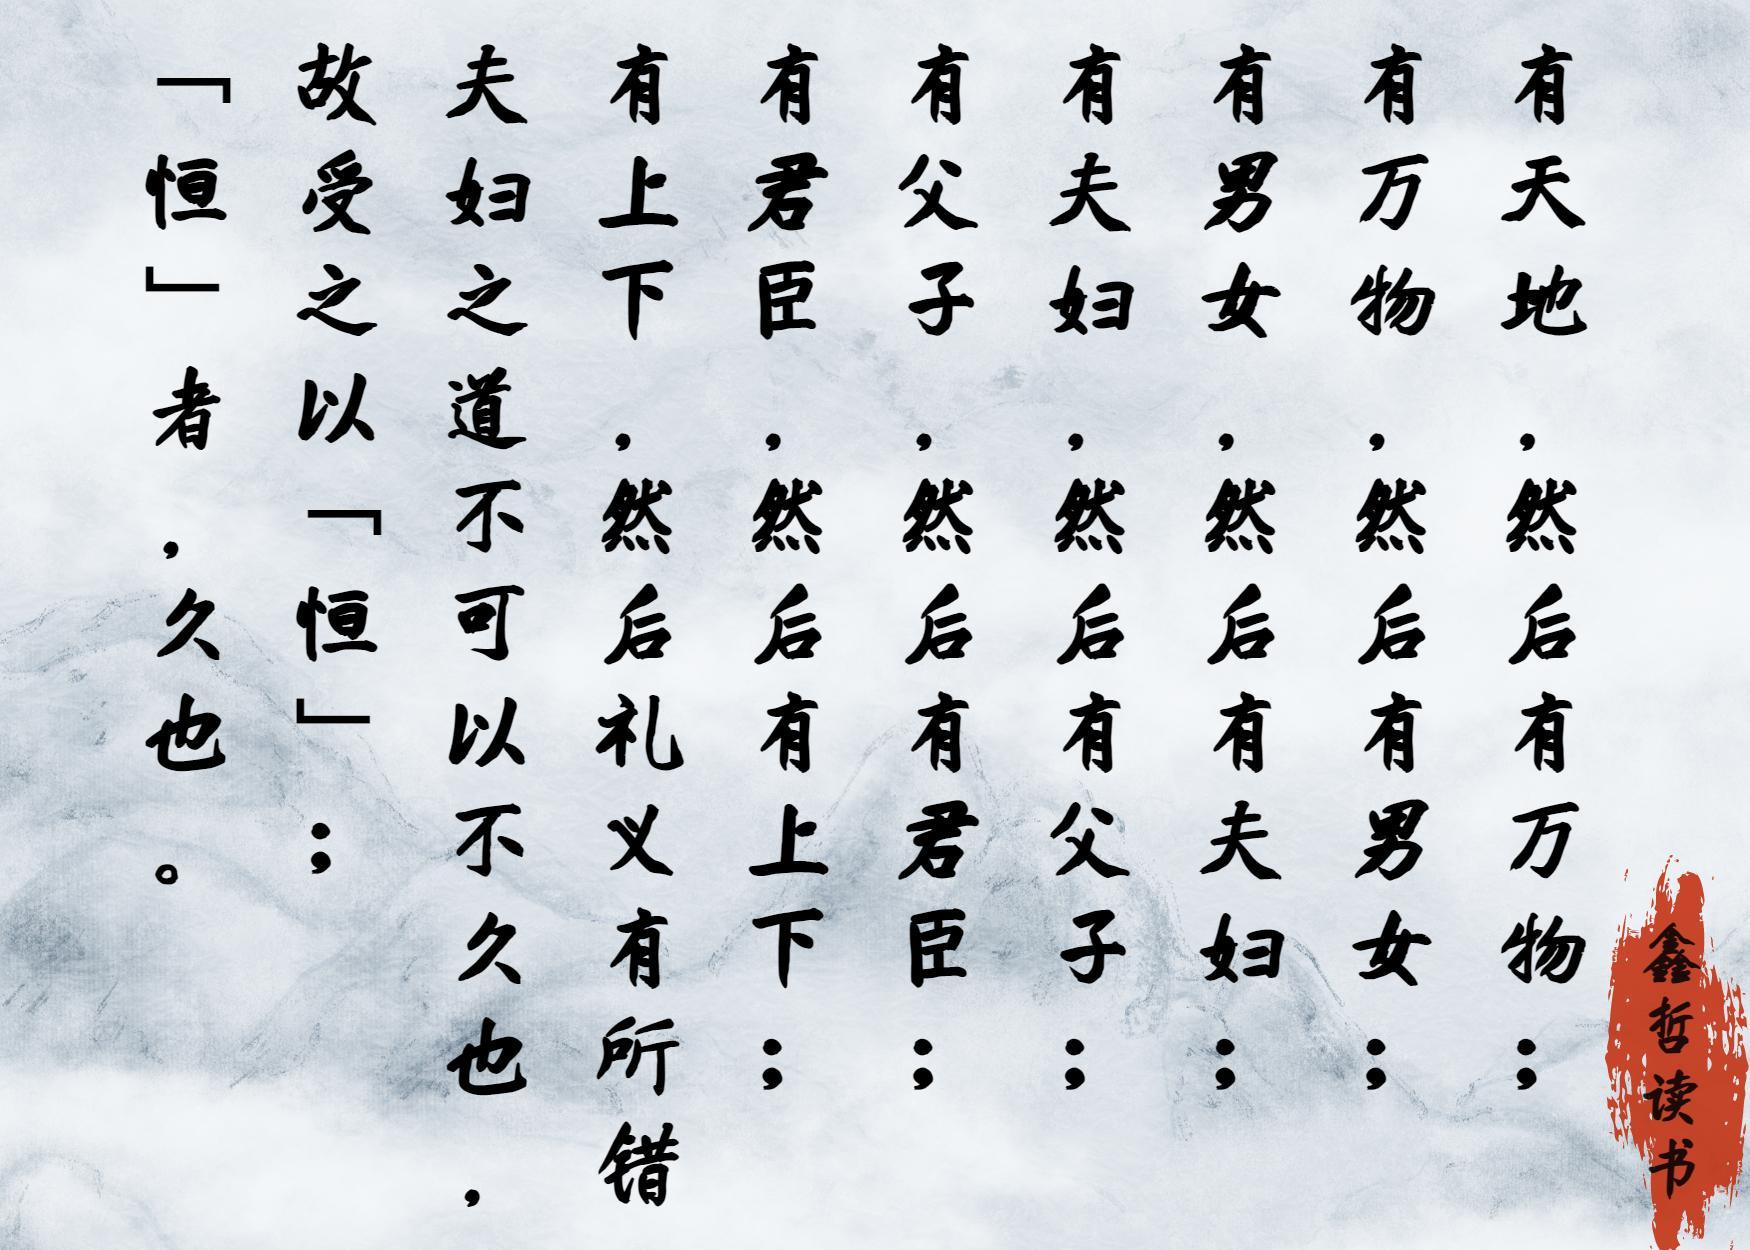 有天地，然后有万物；
有万物，然后有男女；
有男女，然后有夫妇；
有夫妇，然后有父子；
有父子，然后有君臣；
有君臣，然后有上下；
有上下，然后礼义有所错
夫妇之道不可以不久也，
故受之以「恒」；
「恒」者，久也。
鑫哲读书